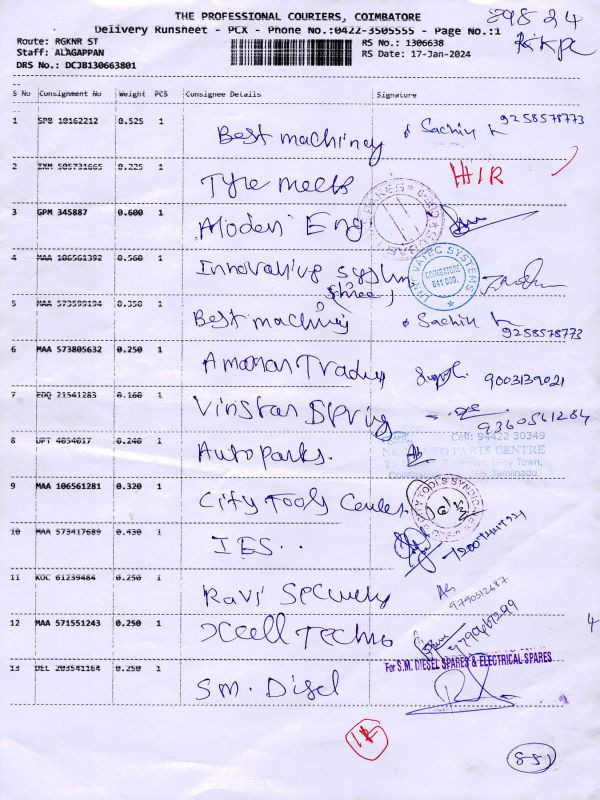 THE PROFESSIONAL COURIERS, COIMBATORE
89824
Delivery Runsheet - PCX - Phone No.:0422-3505555 - Page No.:1
Route: RGKNR ST
RS No.: 1306638
Staff: ALAGAPPAN
RS Date: 17-Jan-2024
DRS No.: DCJB130663801
S No Consignment No Weight PCS Consignee Details Signature
1 SPB 10162212 0.525 1 Best machiney Sachin K 9258578773
2 IXM 505731665 0.225 1 Tyre mech HIR
3 GPM 345887 0.600 1 Eng
4 MAA 106561392 0.560 1 Innovative system
INNOVATEC SYSTEMS COIMBATORE 641 009.
5 MAA 573599194 0.350 1 Best machinij Sachin K 9258578773
6 MAA 573805632 0.250 1 9003139021
7 EDQ 21541283 0.160 1 Spring 9360561264
8 UPT 4054017 0.240 1 Autoparks.
Cell: 94422 30349
PARTS CENTRE
Grey Town,
Tamilnadu.
9 MAA 106561281 0.320 1 City Tools Center
10 MAA 573417689 0.430 1 IES..
11 KOC 61239484 0.250 1 Ravi Security 9790512687
12 MAA 571551243 0.250 1 Xcell Techno
4
For S.M. DIESEL SPARES & ELECTRICAL SPARES
13 DEL 203541164 0.250 1 S.M. Disel